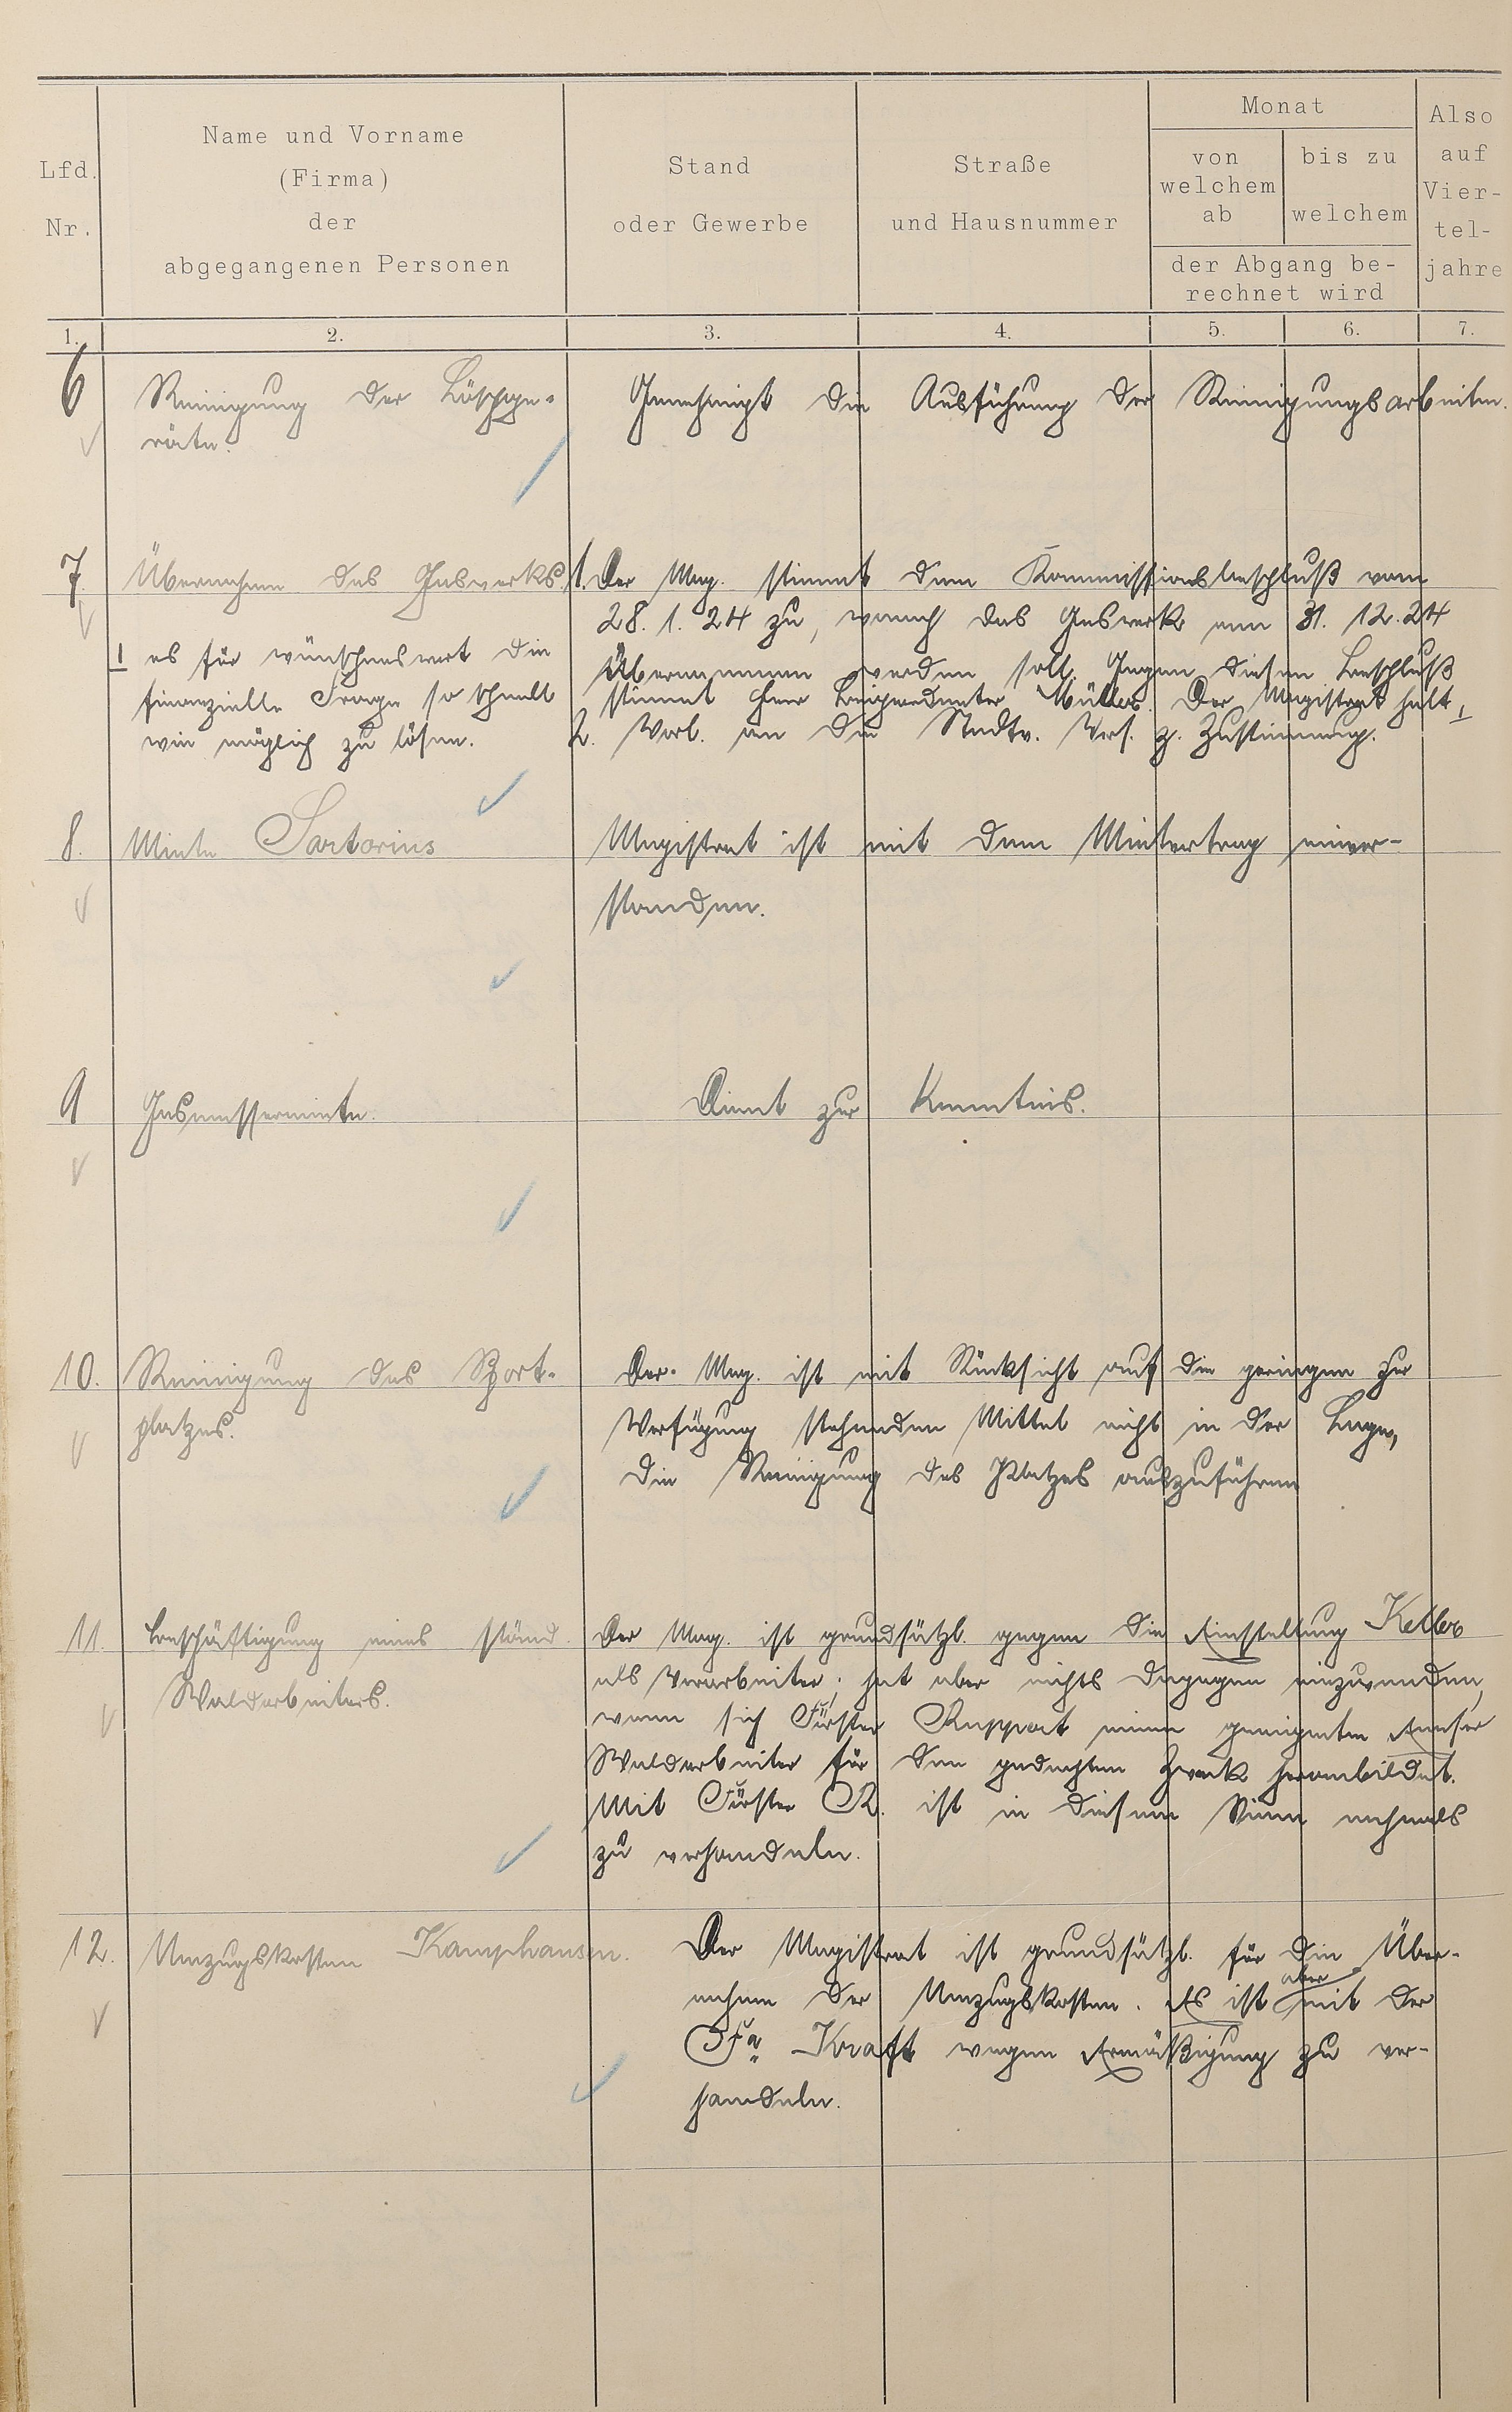 Lfd. Nr.
Name und Vorname
(Firma)
der
abgegangenen Personen
Stand
oder Gewerbe
Straße
und Hausnummer
Monat
von
welchem
ab
bis zu
welchem
der Abgang be-
rechnet wird
Also
auf
Vier-
tel-
jahre
1. 2. 3. 4. 5. 6. 7.
6 Reinigung der Löschge-
räte.
Genehmigt die Ausführung der Reinigungsarbeiten.
7 Übernahme des Gaswerks.
1. Der Mag. stimmt dem Kommissionsbeschluß vom
28. 1. 24 zu, wonach das Gaswerk am 31. 12. 24
übernommen werden soll. Gegen diesen Beschluß
stimmt Herr Beigeordneter Müller. Der Magistrat hält
es für wünschenswert die
finanzielle Frage so schnell
wie möglich zu lösen.
2. Vorl. an die Stadtv. Vers. z. Zustimmung.
8. Miete Sartorius
Magistrat ist mit dem Mietvertrag einver-
standen.
9 Gasmessermiete.
Dient zur Kenntnis.
10. Reinigung des Sport-
platzes.
Der Mag. ist mit Rücksicht auf die geringen zur
Verfügung stehenden Mittel nicht in der Lage,
die Reinigung des Platzes auszuführen
11. Beschäftigung eines ständ.
Waldarbeiters.
Der Mag. ist grundsätzl. gegen die Einstellung Keller
als Vorarbeiter; hat aber nichts dagegen einzuwenden,
wenn sich Förster Ruppert einen geeigneten Emser
Waldarbeiter für den gedachten Zweck heranbildet.
Mit Förster R. ist in diesem Sinne nochmals
zu verhandeln.
12. Umzugskosten Kamphausen.
Der Magistrat ist grundsätzl. für die Über-
nahme der Umzugskosten. Es ist aber mit der
Fa. Kraft wegen Ermäßigung zu ver-
handeln.